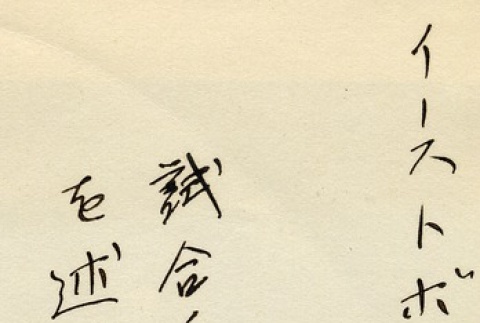 イーストボ
試合
を述